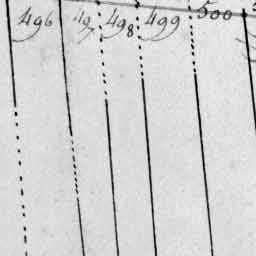 496 497 498 499 500